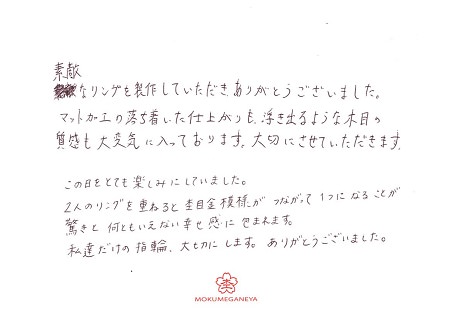 素敵
なリングを製作していただき、ありがとうございました。
マット加工の落ち着いた仕上がりも、浮き出るような木目の
質感も大変気に入っております。大切にさせていただきます。
この日をとても楽しみにしていました。
2人のリングを重ねると杢目金模様が つながって 1つになることが
驚きと 何ともいえない幸せ感に包まれます。
私達だけの指輪、大切にします。ありがとうございました。
杢
MOKUMEGANEYA